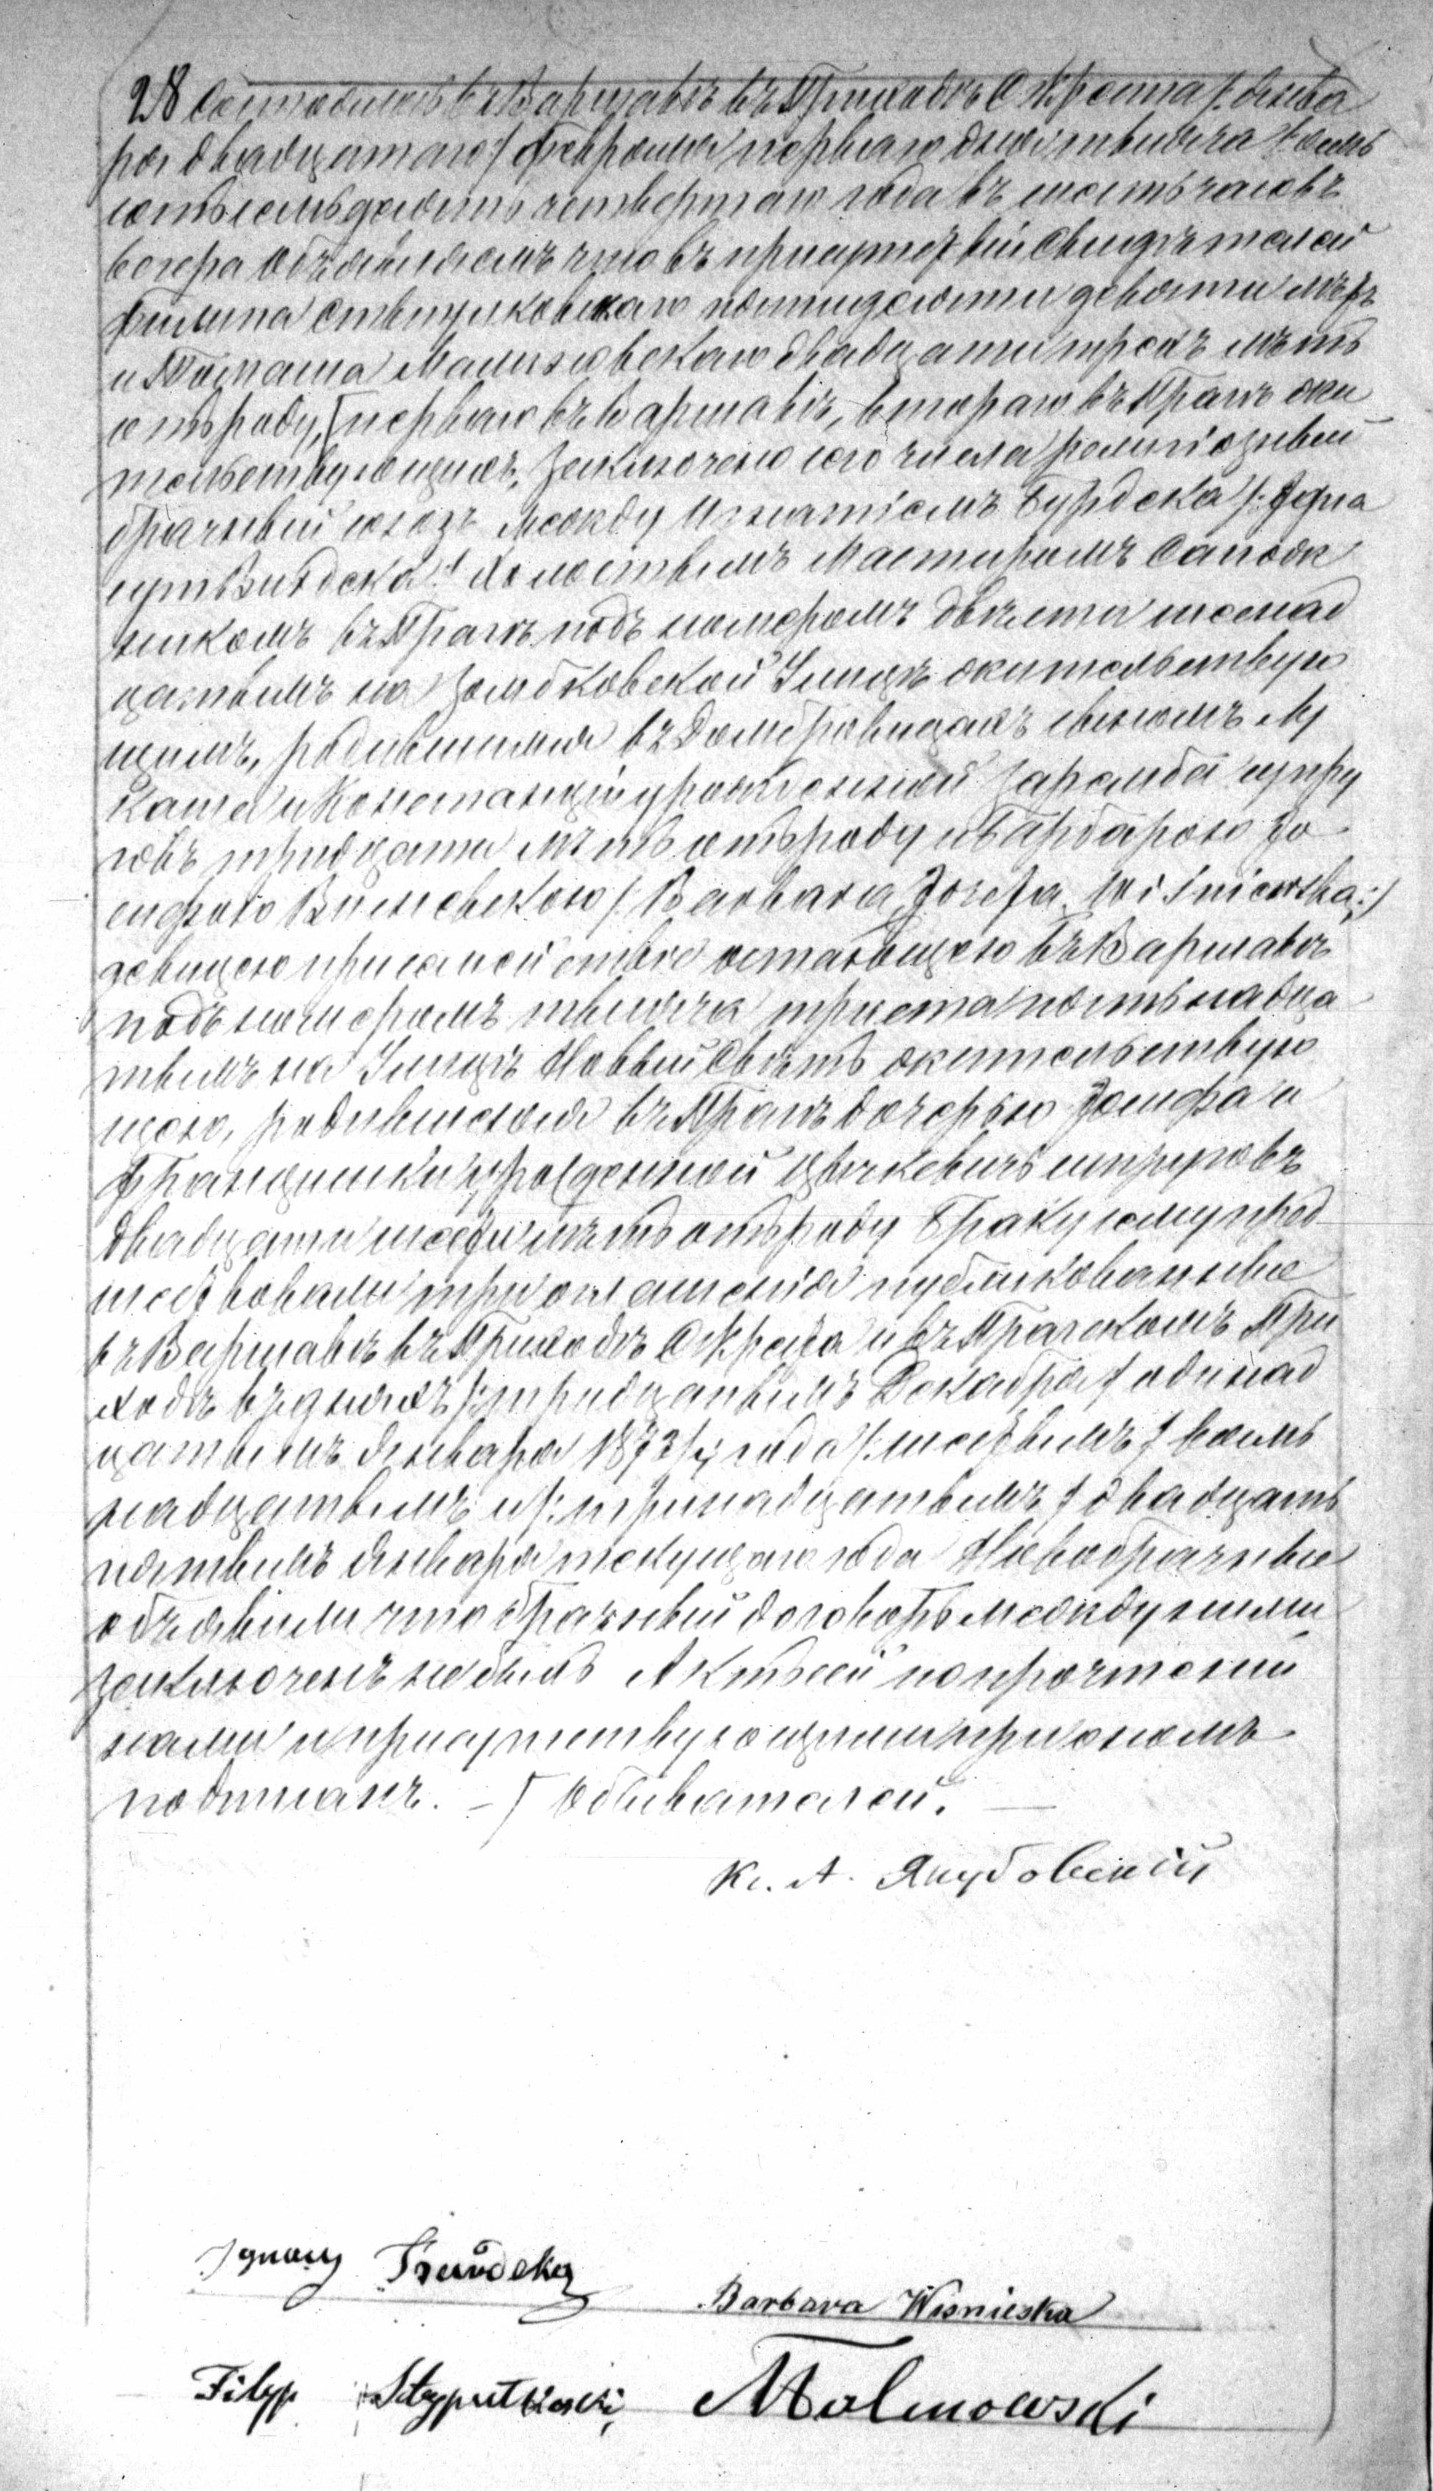 28 Состоялось въ Варшавѣ въ Приходѣ С Креста /: Января
ря двадцатаго / Февраля перваго дня тысяча восемь
сотъ семьдесятъ четвертаго года въ шесть часовъ
вечера Объявляемъ что въ присутствіи Свидѣтелей
Филипа пятидесяти девяти лѣтъ
и Томаша Малиновскаго двадцати трехъ лѣтъ
отъ роду, [перваго въ Варшавѣ, втораго въ Прагѣ жи
тельствующихъ, заключено сего числа религіозный
брачный союзъ между Игнатіемъ
холостымъ Мастеромъ Сапож
никомъ въ Прагѣ подъ номеромъ двѣсти шеснад
цатымъ на Зомбковской Улицѣ жительствую
щимъ, родившимся въ Домбровицахъ сыномъ Лу
каша и Констанціи урожденной Заремба супру
говъ тридцати лѣтъ отъ роду и Барбарою Іо
зефою Висневскою /: Barbara Józefa Wiśniewska :/
девицею при семействѣ остающеюся въ Варшавѣ
подъ номеромъ тысяча триста пятьнадца
тымъ на Улицѣ Новый Свѣтъ жительствую
щею, родившеюся въ Прагѣ дочерью Іозефа и
Францишки урожденной супруговъ
двадцати шести лѣтъ отъ роду Браку сему пред
шествовали три оглашенія публикованныя
въ Варшавѣ въ Приходѣ С Креста и въ Пражскомъ При
ходѣ въ дняхъ /: тридцатымъ Декабря / одинад
цатымъ Января 1873/4 года /: шестымъ / восемь
надцатымъ и /: тринадцатымъ / двадцать
пятымъ Января текущаго года Новобрачные
объявили что брачный договоръ между ними
заключенъ не былъ Актъ сей по прочтеніи
нами и присутствующими при ономъ
подписанъ. – [ Обывателей. —
Кс. А. Якубовскій
Ignacy
Barbara Wisnieska
Filip Malinowski